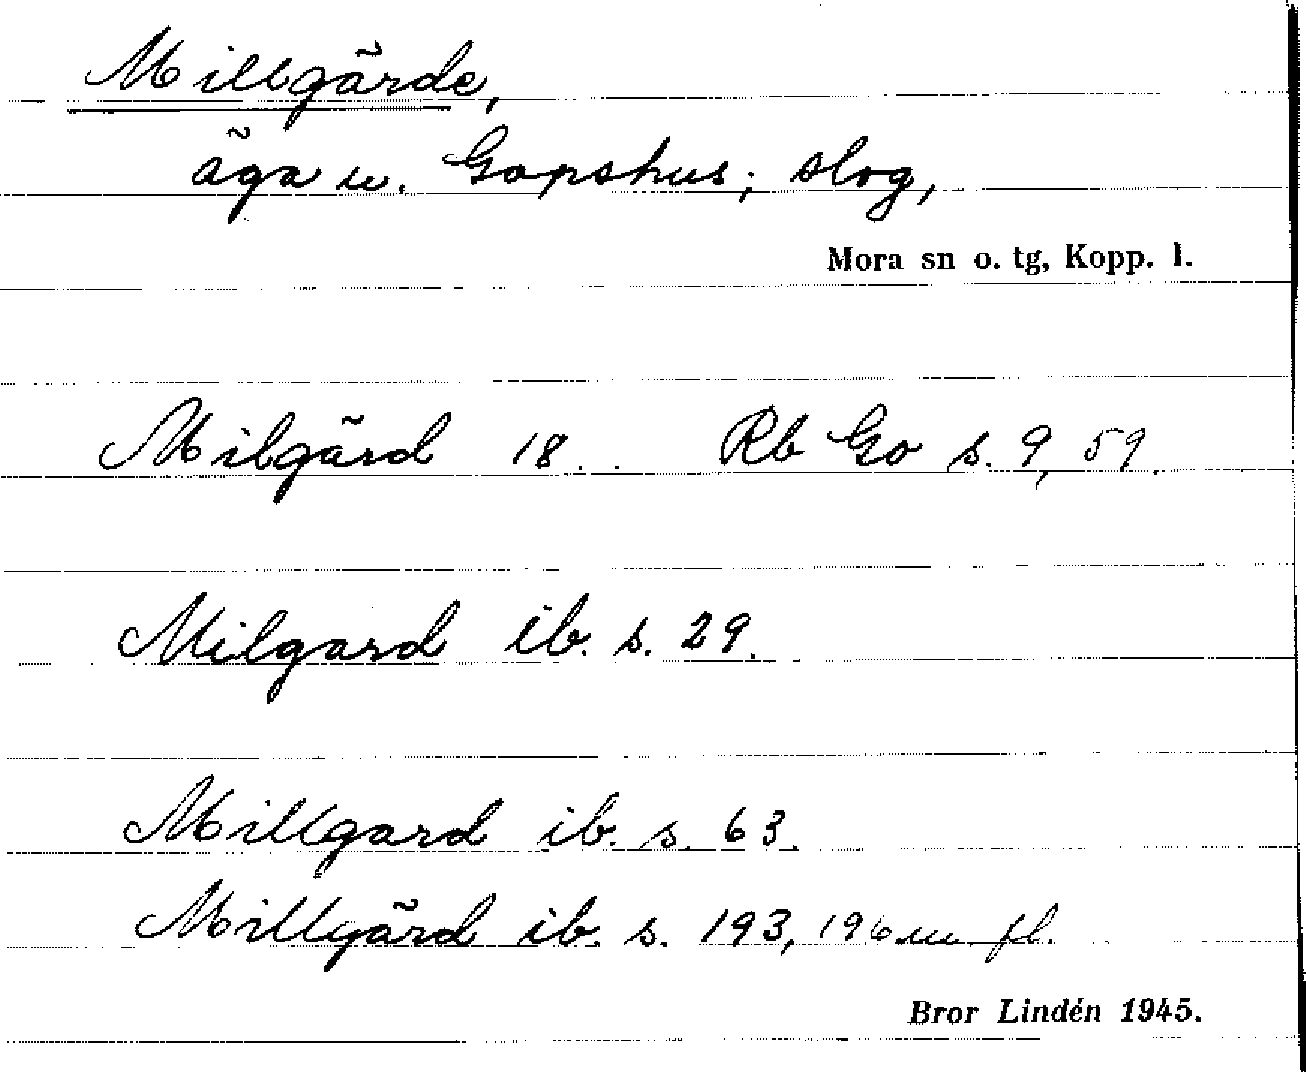 Millgärde,
äga u. Gopshus; slog,
Mora sn o. tg, Kopp. l.
Milgärd 18. Rb Go s. 9, 59.
Milgard ib. s. 29.
Millgard ib. s. 63.
Millgärd ib. s. 193, 196 m fl.
Bror Lindén 1945.